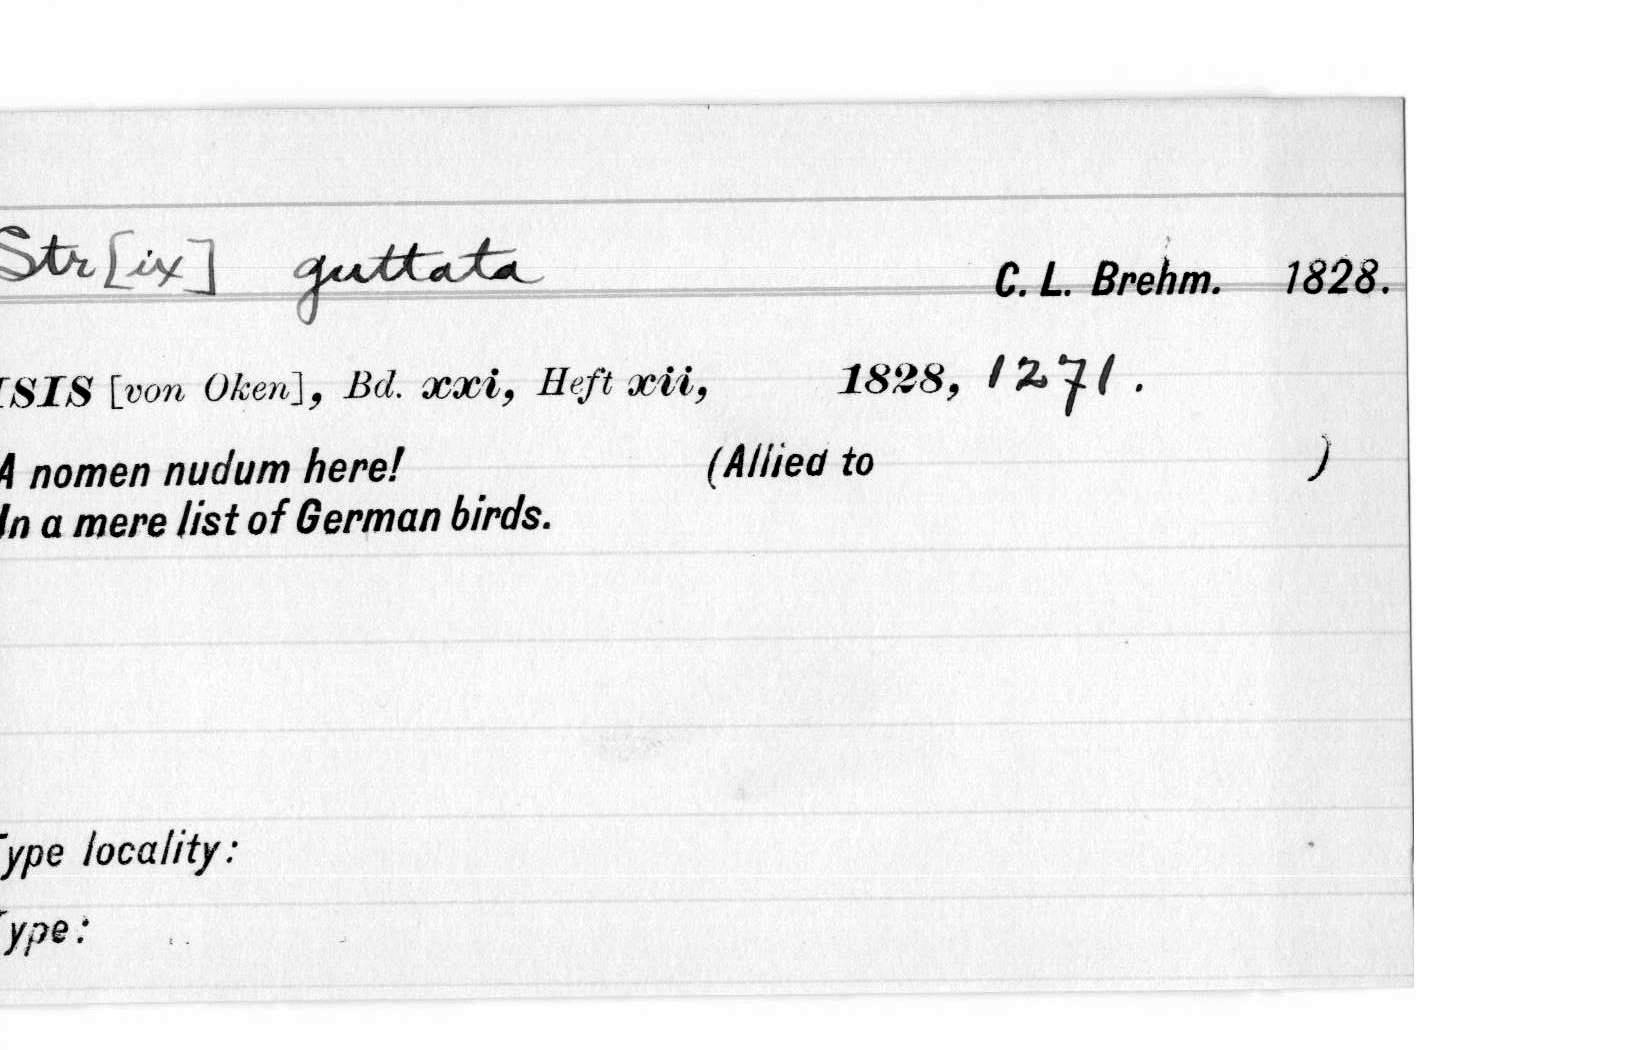 Str[ix] guttata C. L. Brehm. 1828.
ISIS [von Oken], Bd. xxi, Heft xii, 1828, 1271.
A nomen nudum here! (Allied to )
In a mere list of German birds.
Type locality:
Type: